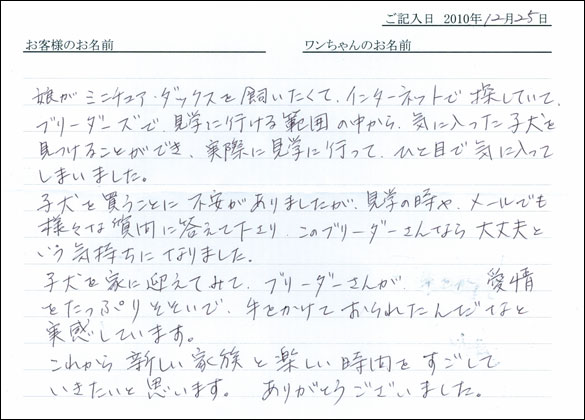 ご記入日 2010年12月25日
お客様のお名前 ワンちゃんのお名前
娘がミニチュア・ダックスを飼いたくて、インターネットで探していて、
ブリーダーズで、見学に行ける範囲の中から、気に入った子犬を
見つけることができ、実際に見学に行って、ひと目で気に入って
しまいました。
子犬を買うことに不安がありましたが、見学の時や、メールでも
様々な質問に答えて下さり、このブリーダーさんなら大丈夫と
いう気持ちになりました。
子犬を家に迎えてみて、ブリーダーさんが、愛情
をたっぷりそそいで、手をかけておられたんだなと
実感しています。
これから新しい家族と楽しい時間をすごして
いきたいと思います。ありがとうございました。